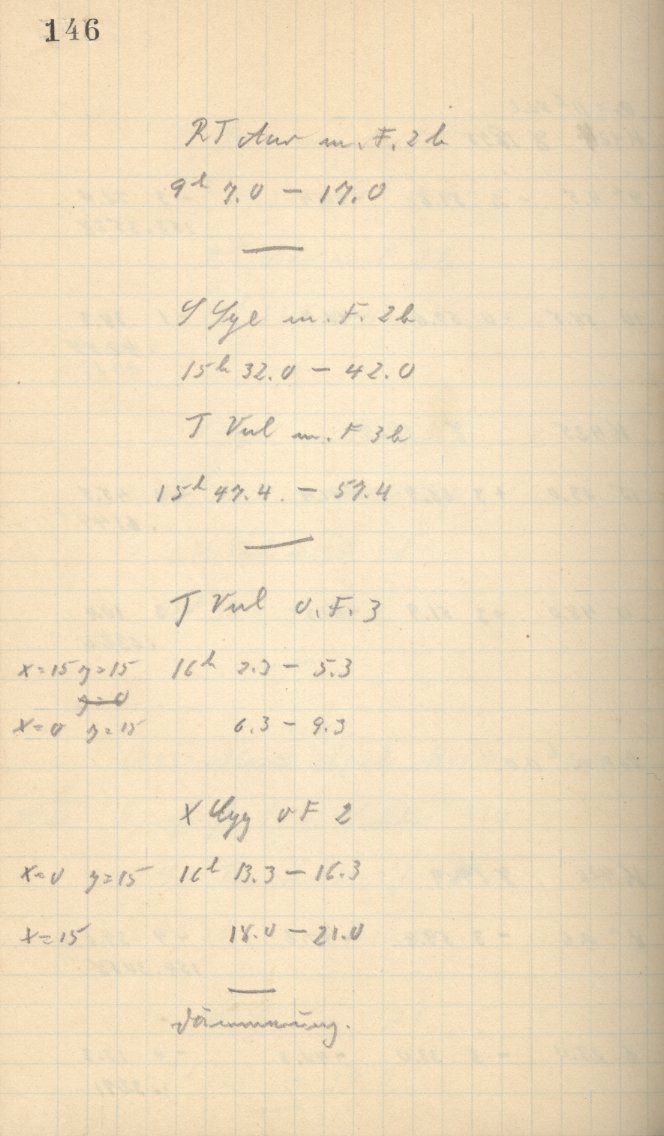 146
RT Aur m. F. 2b
9h 7.0 — 17.0
S Sge m. F. 2b
15h 32.0 — 42.0
T Vul m. F 3b
15h 47.4. — 57.4
T Vul o. F. 3
x=15 y=15 16h 2.3 — 5.3
y=0
x=0 y=15 6.3 — 9.3
X Cyg o F 2
x=0 y=15 16h 13.3 — 16.3
x=15 18.0 — 21.0
Dämmerung.